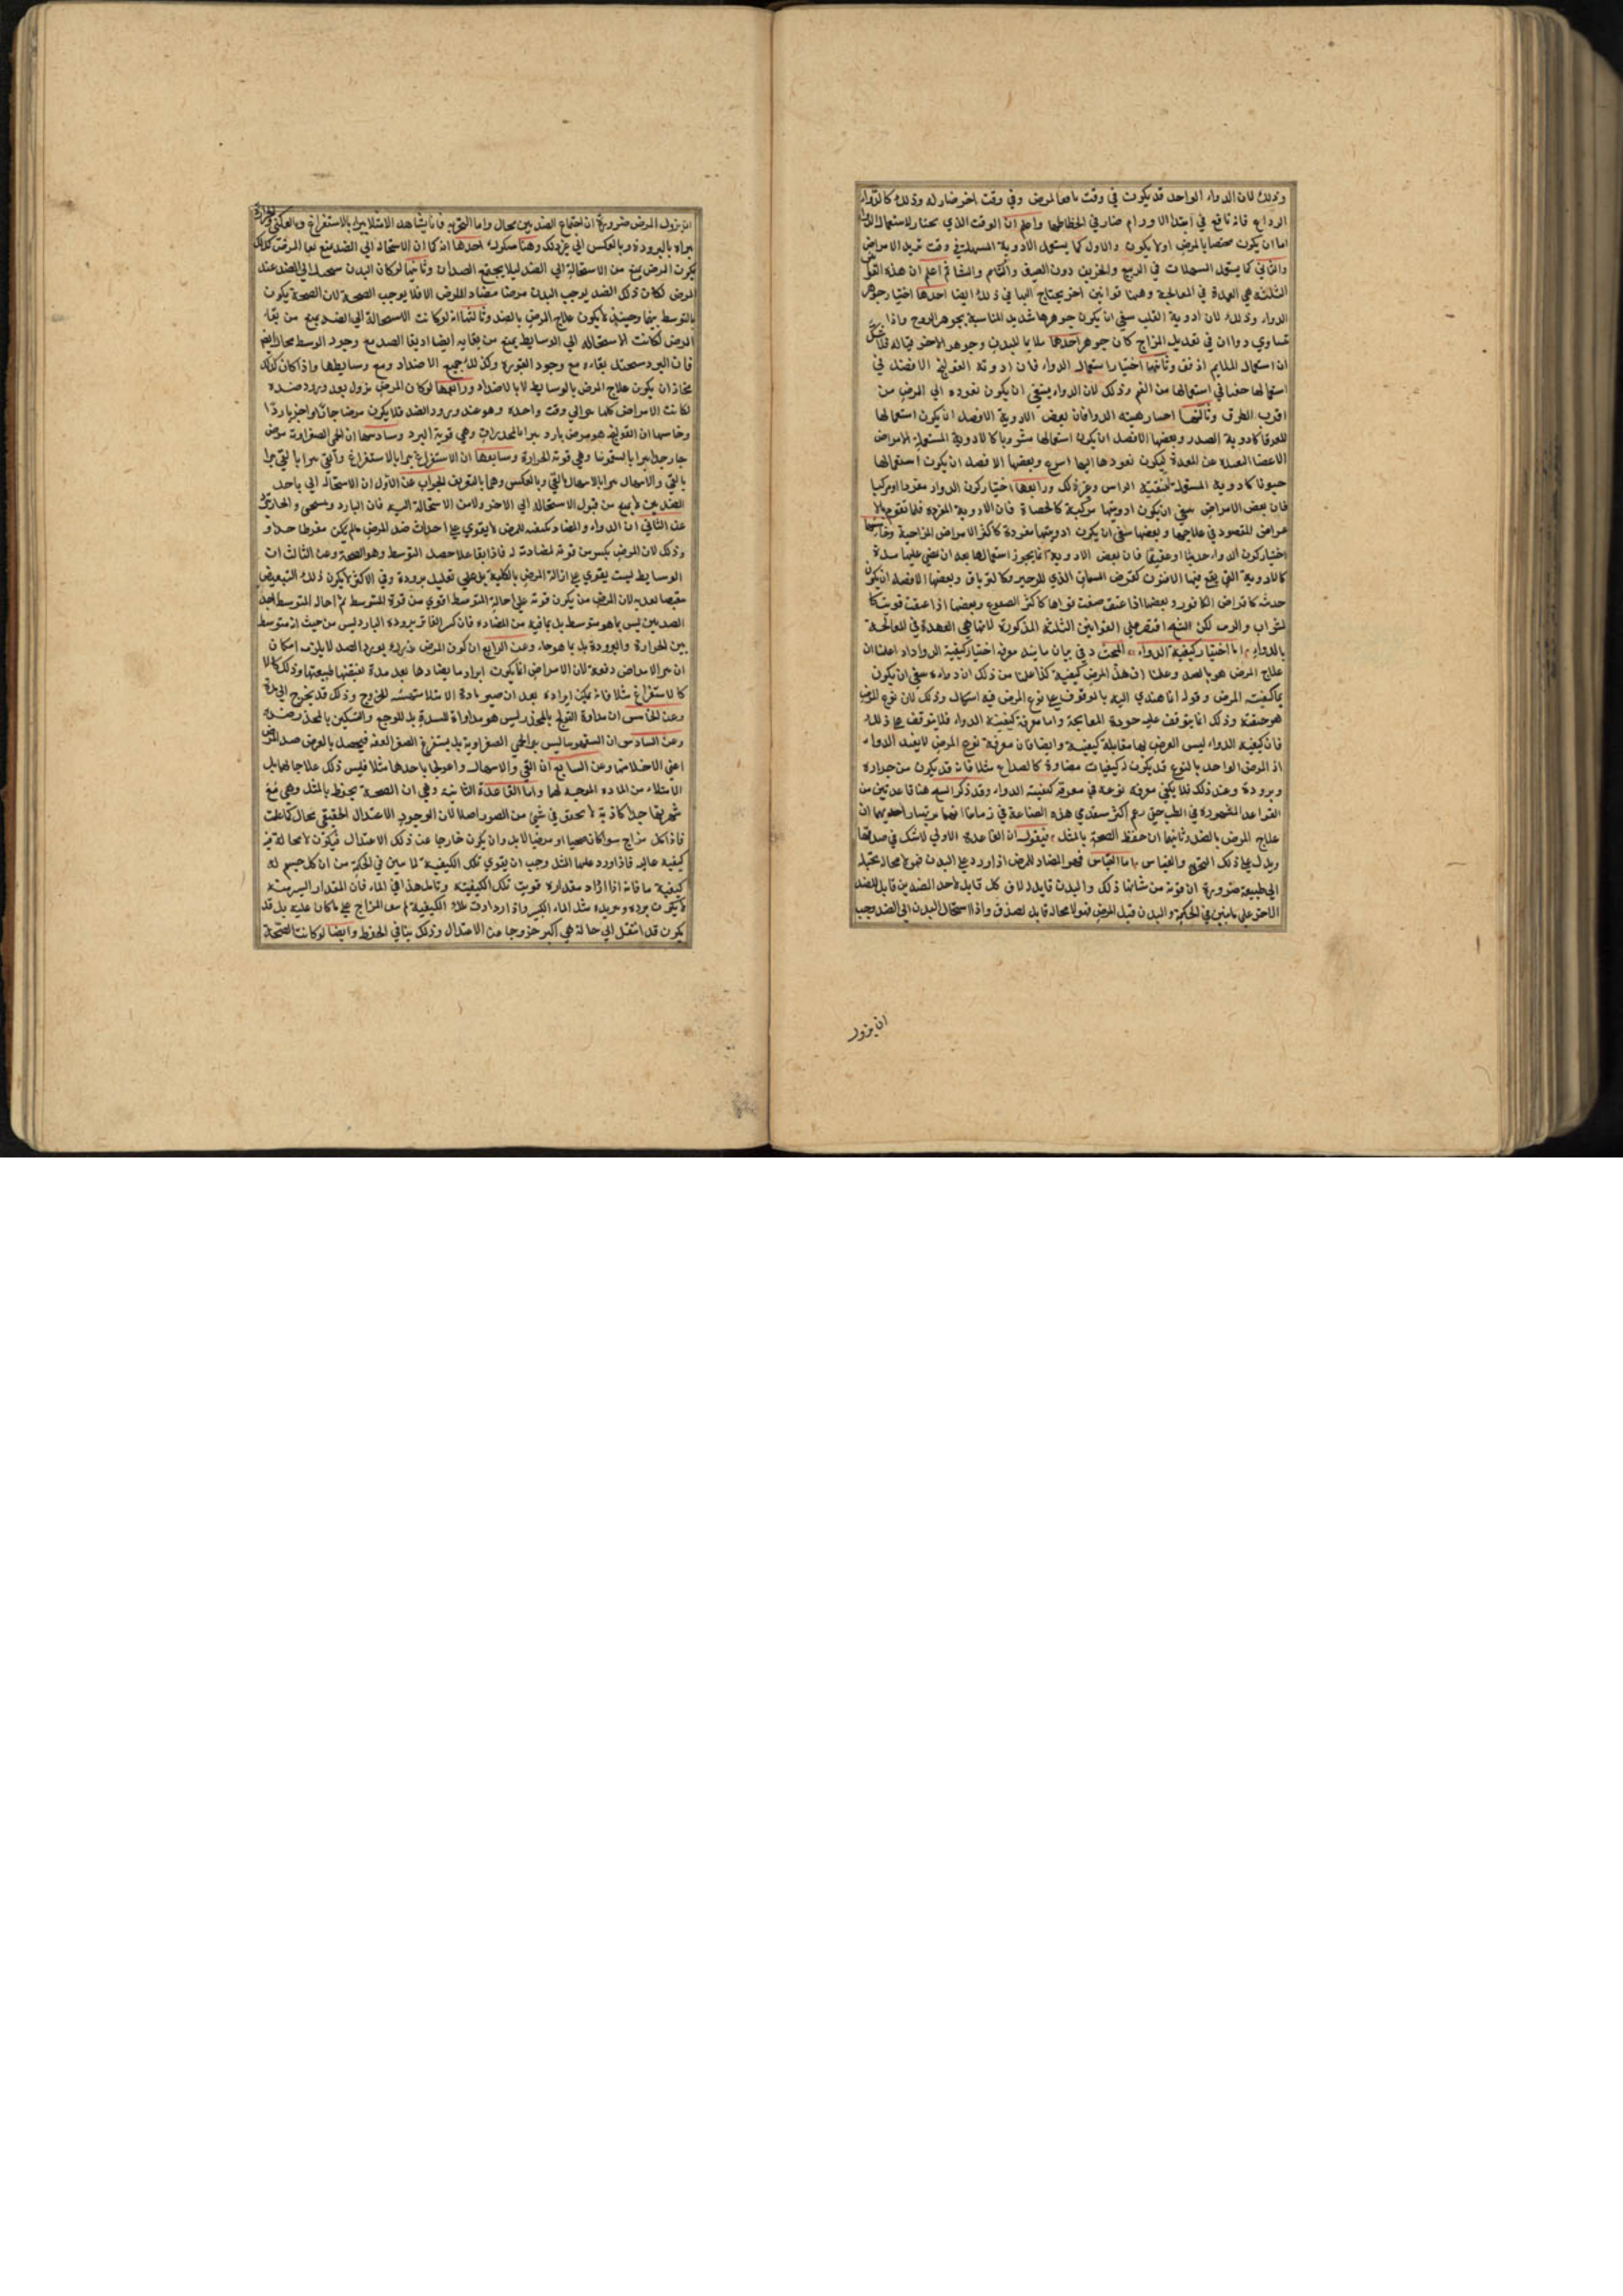 وذلك لان الدواء الواحد قد يكون في وقت نافعا لمرض وفي وقت اخر ضار له وذلك كالدواء
الرداع فانه نافع في ابتدا الاورام ضار في انحطاطها واعلم ان الوقت الذي يختار لاستعمال الدواء
اما ان يكون مختصا بالمرض اولا يكون والاول كما يستعمل الادوية المسهلة في وقت
والثاني كما يستعمل المسهلات في الربيع والخريف دون الصيف والشتاء ثم اعلم ان هذه
الثلثة هي العمدة في المعالجة وههنا قوانين اخر يحتاج اليها في ذلك ايضا احدها اختيار جوهر
الدواء وذلك لان ادوية القلب ينبغي ان يكون جوهرها شديد المناسبة بجوهر الروح واذا
تساوي دواان في تعديل المزاج كان جوهر احدهما ملايما للبدن وجوهر الاخر
ان استعمال الملايم اوفق وثانيها اختيار استعمال الدواء فان ادوية القولنج الافضل في
استعمالها حقنا في استعمالها من الفم وذلك لان الدواء ينبغي ان يكون نفوذه الي المرض من
اقرب الطرق وثالثها اختيار هيئة الدوا فان بعض الادوية الافضل ان يكون استعمالها
لعوقا كادوية الصدر وبعضها الافضل ان يكون استعمالها مشروبا كالادوية المستعملة لامراض
الاعضا البعيدة عن المعدة ليكون نفوذها اليها اسرع وبعضها الافضل ان يكون استعمالها
كادوية المستعملة لتنقية الراس وغير ذلك ورابعها اختيار كون الدواء مفردا او مركبا
فان بعض الامراض ينبغي ان يكون ادويتها مركبة كالحصاة فان الادوية المفردة قلما تقوم
المقصود في علاجها وبعضها ينبغي ان يكون ادويتها مفردة كاكثر الامراض المزاجية وخامسها
اختيار كون الدواء حديثا او عتيقا فان بعض الادوية انما يجوز استعمالها بعد ان يمضي عليها مدة
كالادوية التي يقع فيها الافيون وكالترياق وبعضها الافضل ان يكون
حديثة كاقراص الكافور وبعضها اذا عتق ضعفت قواها كاكثر الصموغ وبعضها اذا عتقت قويت
كالشراب لكن الشيخ اقتصر علي القوانين الثلثة المذكورة لانها هي العمدة في المعالجة
بالدواء اما اختيار كيفية الدواء البحث في بيان ما يتم معرفة اختيار كيفية الدواء اعلم ان
علاج المرض هو بالضد وعلمنا ان هذا المرض كيفيته كذا علمنا من ذلك ان دواءه ينبغي ان يكون
كيفيته المرض وقوله انما يهتدي اليه بالوقوف علي نوع المرض فيه اشكال وذلك لان نوع المرض
هو حقيقته وذلك انما يتوقف عليه جودة المعالجة واما معرفة كيفية الدواء فلا يتوقف علي ذلك
فان كيفية الدواء ليس الغرض بها مقابلة كيفية وايضا فان معرفة نوع المرض لا يفيد الدواء
اذ المرض الواحد بالنوع قد يكون ذ كيفيات متضادة كالصداع مثلا فانه قد يكون من حرارة
وبرودة وعند ذلك فلا يكفي معرفة نوعه في معرفة كيفية الدواء وقد ذكر الشيخ هنا قاعدتين من
القواعد المشهورة في الطب حتي زعم اكثر متقدمي هذه الصناعة في زماننا احديهما ان
علاج المرض بالضد وثانيها ان حفظ الصحة بالمثل فنقول ان القاعدة الاولي لا شك في صدقها
ويدل علي ذلك التجربة والقياس اما القياس فهو المضاد للمرض اذا ورد علي البدن فهو لا محالة يحيله
الي طبيعة ضرورة ان قوته من شانها ذلك والبدن قابل لان كل قابل لاحد الضدين قابل للضد
الاخر علي ما تبين في الحكمة والبدن قبل المرض فهو لا محالة قابل لضده واذا استحال البدن الي الضد وجب
ان يزول
ان يزول المرض ضرورة ان اجتماع الضدين محال واما التجربة فانا نشاهد الامتلا يبرا بالاستفراغ وبالعكس
يبراء بالبرودة وبالعكس الي غير ذلك وهنا شكوك احدها انه كما ان الاستحالة الي الضد يمنع بقا المرض كذلك
يكون المرض يمنع من الاستحالة الي الضد ليلا يجتمع الضدان وثانيها لو كان البدن يستحيل الي الضد عند
المرض لكان ذلك الضد يوجب البدن مرضا مضاد للمرض الا فلا يوجب الصحة لان الصحة يكون
بالتوسط بينهما وحينئذ لا يكون علاج المرض بالضد وثالثها انه لو كانت الاستحالة الي الضد يمنع من بقاء
المرض لكانت الاستحالة الي الوسايط يمنع من بقايه ايضا اذ بقا الضد مع وجود الوسط محال ايضا
فان البرد يستحيل بقاءه مع وجود الفتورة وكذلك جميع الاضداد ومع وسايطها واذا كان كذلك
فجاز ان يكون علاج المرض بالوسايط لا بالاضداد ورابعها لو كان المرض يزول بعد ورود ضده
لكانت الامراض كلها تبرا في وقت واحد وهو عند ورود الضد فلا يكون مرضا حارا واخر باردا
وخامسها ان القولنج هو مرض بارد يبرا بالمخدرات وهي قوية البرد وسادسها ان الحمي الصفراوية مرض
حار جدا يبرا بالسقمونيا وهي قوية الحرارة وسابعها ان الاستفراغ يبرا بالاستفراغ والقي يبرا بالقي
بالقي والاسهال يبرا بالاسهال والقي وبالعكس وهما بالتعريف الجواب عن الاول ان الاستحالة الي احد
الضدين لا يمنع من قبول الاستحالة الي الاخر ولا من الاستحالة اليه فان البارد
عن الثاني ان الدواء والمضاد كيفيته للمرض لا يقوي علي احداث ضد المرض ما لم يكن مفرطا جدا و
وذلك لان المرض يكسر من قوته لمضادته له فاذا بقا علاجا حصل التوسط وهو الصحة وعن الثالث ان
الوسايط ليست يقوي علي ازالة المرض بالكلية بل علي تقليل برودة وفي الاكثر لا يكون ذلك التبعيض
لان المرض من يكون قوته علي احالة المتوسط اقوي من قوة المتوسط ثم احالة المتوسط احد
الضدين ليس بما هو متوسط بل بما فيه من المضادة فان كسر الفاتر برودة البارد ليس من حيث انه متوسط
بين الحرارة والبرودة بل بما هو حار وعن الرابع ان كون المرض يزول بورود الضد لا يلزمه امكان
ان يبرا الامراض دفعة لان الامراض انما يكون ايراد ما يضادها بعد مدة تقتضيها طبيعتها وذلك
كالاستفراغ مثلا فانه يمكن ايراده بعد ان صير مادة الامتلا مستعدة للخروج وذلك قد يخرج الي مدة
وعن الخامس ان مداواة القولنج بالمخدر ليس هو مداواة للسدة بل للوجع والتسكين بالمخدر
وعن السادس ان السقمونيا ليس يبرا الحمي الصفراوية بل يستفرغ الصفرا العفنة فيحصل بالعرض ضد المرض
اعني وعن السابع ان القي والاسهال واعولجا باحدهما مثلا فليس ذلك علاجا لهما بل
الامتلاء من المادة الموجبة لهما واما القاعدة الثانية وهي ان الصحة يحفظ بالمثل وهي مع
شهرتها جدا كاذبة لا يتحقق في شي من الصور اصلا لان الوجود الاعتدال الحقيقي محال كما علمت
فاذا كل مزاج سواء كان صحيا او مرضيا لابد وان يكون خارجا عن ذلك الاعتدال فيكون لا محالة فيه
كيفية غالبه فاذا ورد عليها المثل وجب ان يقوي تلك الكيفية لما تبين في الحكمة من ان كل جسم له
كيفية ما فانه اذا ازداد مقداره قويت تلك الكيفية وتامل هذا في الماء فان المقدار اليسير منه
لا يكون برده وتبريده مثل الماء الكثير واذ ازدادت تلك الكيفية لم يبق المزاج علي ما كان عليه بل قد
يكون قد انتقل الي حالة هي اكثر خروجا من الاعتدال وذلك ينافي الحفظ وايضا لو كانت الصحة